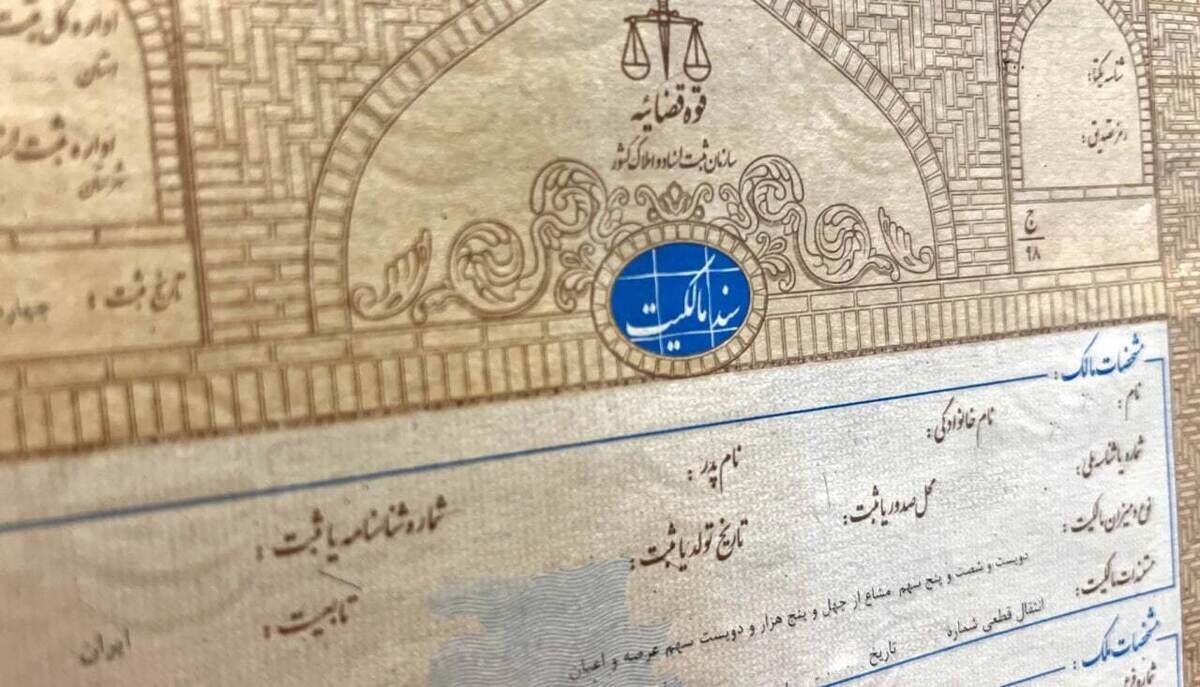 قوه قضائیه
سازمان ثبت اسناد و املاک کشور
شناسه یکتا:
رمز تصدیق:
ج
۹۸
اداره کل ثبت
استان
اداره ثبت
شهرستان
تاریخ ثبت:
سند مالکیت
مشخصات مالک:
نام:
نام خانوادگی:
نام پدر:
شماره شناسنامه یا ثبت:
شماره یا شناسه ملی:
محل صدور یا ثبت:
تاریخ تولد یا ثبت:
تابعیت:
ایران
نوع و میزان مالکیت:
دویست و شصت و پنج سهم مشاع از چهل و پنج هزار و دویست سهم عرصه و اعیان
مستندات مالکیت:
انتقال قطعی شماره
تاریخ
مشخصات ملک: